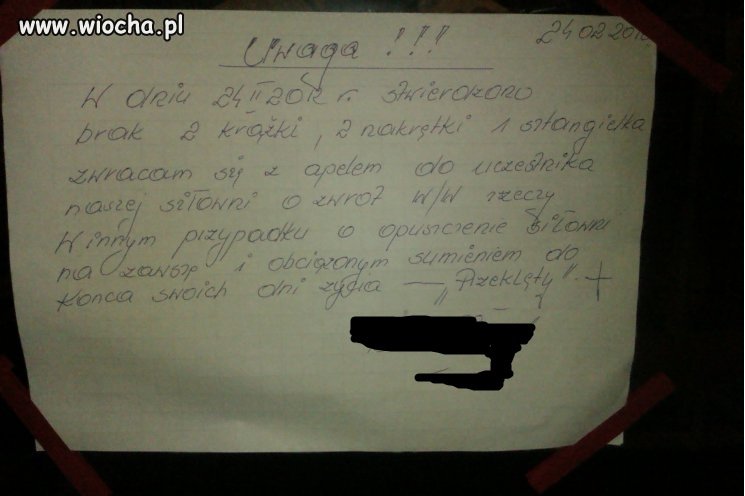 www.wiocha.pl
24 02 2012
Uwaga !!!
W dniu 24 II 2012 r. stwierdzono
brak 2 krążki, 2 nakrętki 1 sztangielka
zwracam się z apelem do uczestnika
naszej siłowni o zwrot w/w rzeczy
W innym przypadku o opuszczenie siłowni
na zawsze i obciążonym sumieniem do
końca swoich dni życia — "Przeklęty". +